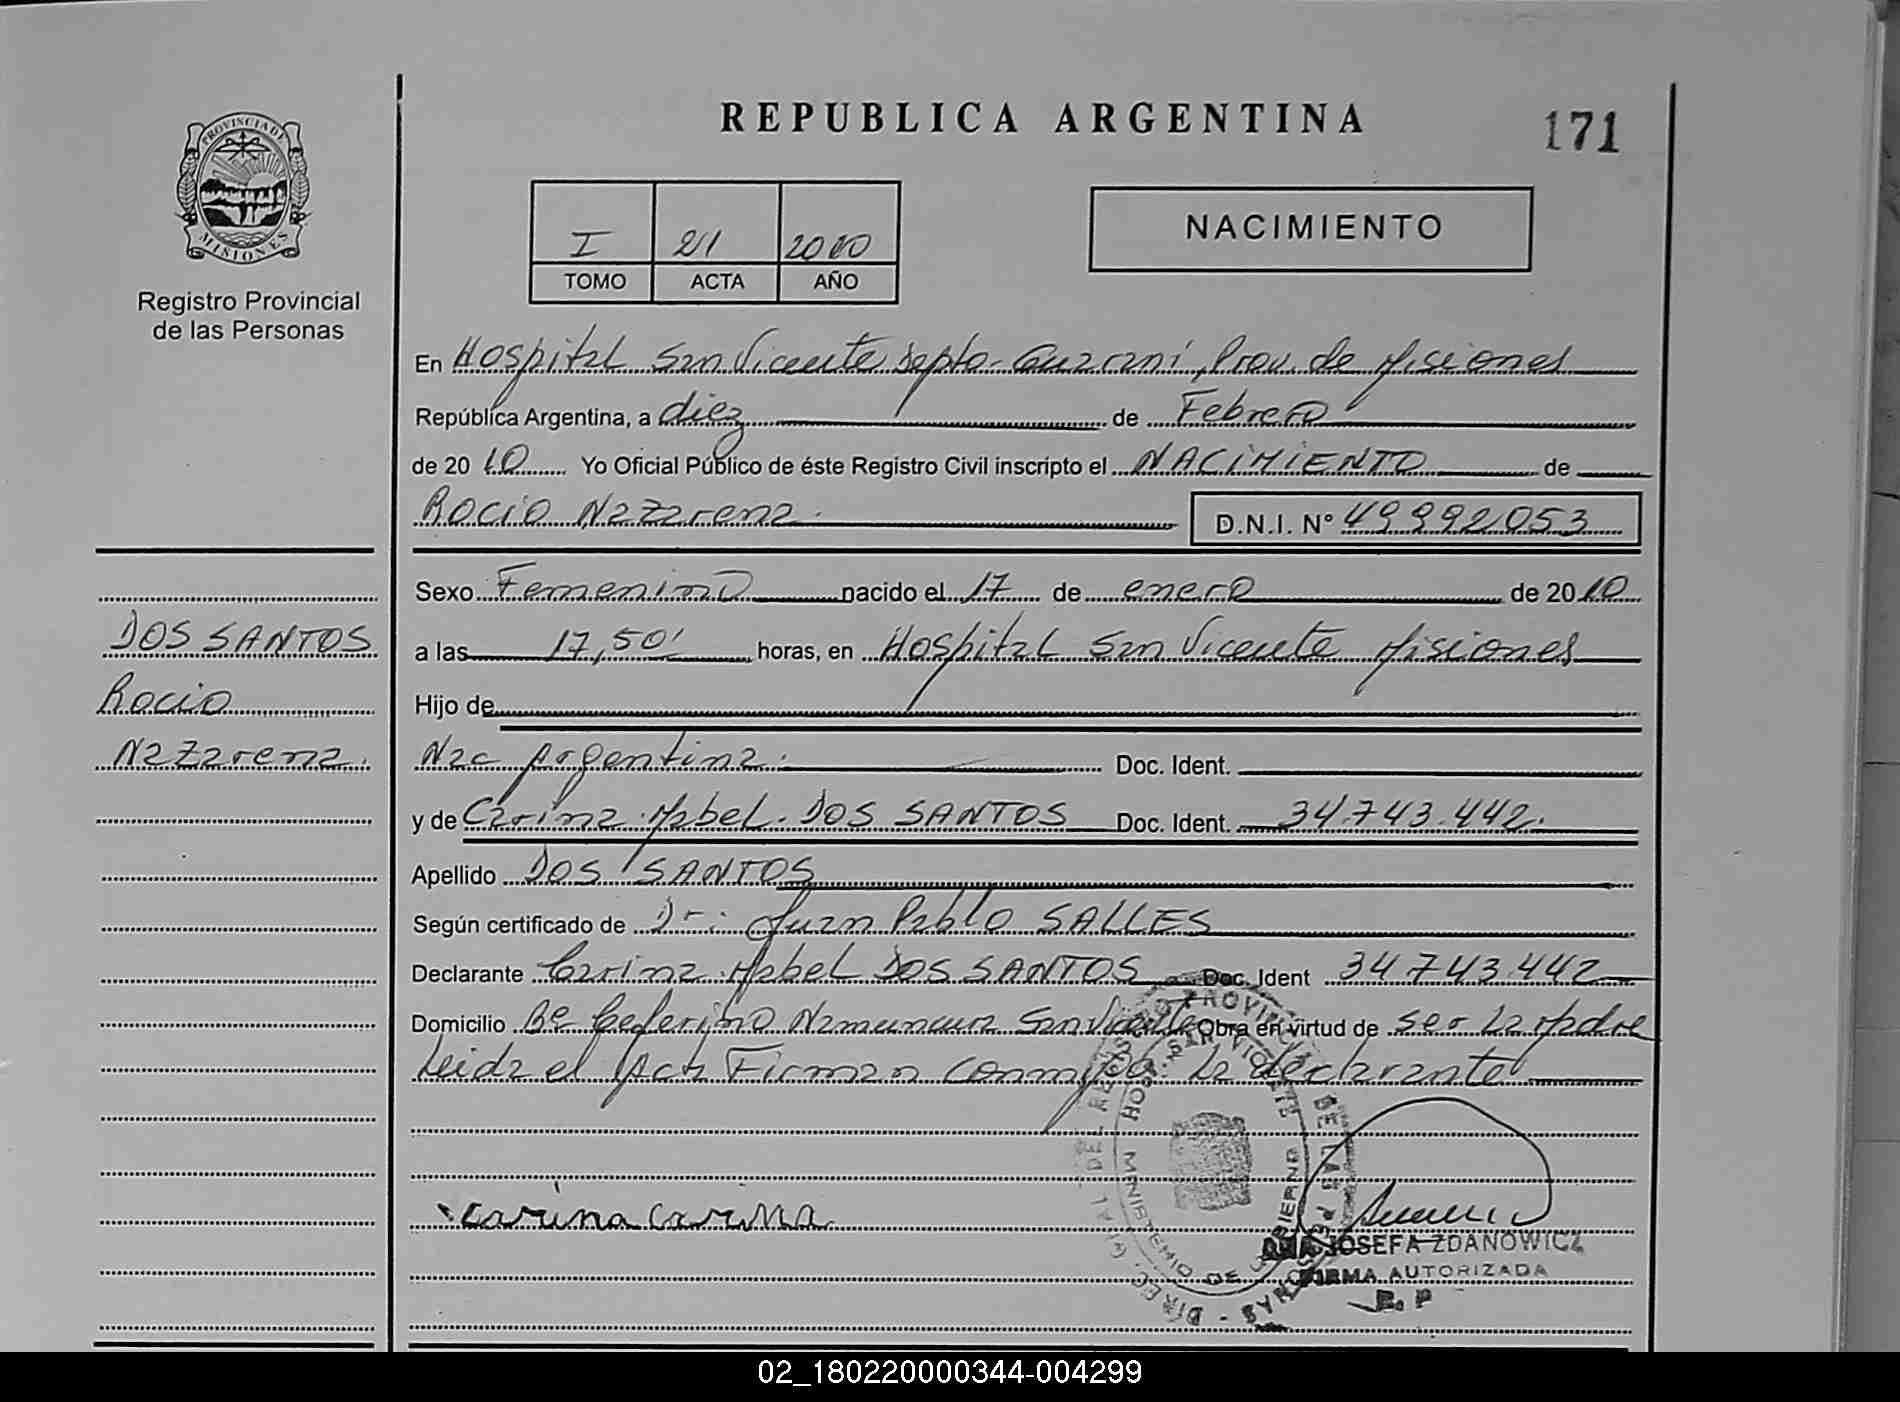 REPUBLICA ARGENTINA
171
PROVINCIA DE MISIONES
Registro Provincial
de las Personas
I 21 2010
TOMO ACTA AÑO
NACIMIENTO
En Hospital San Vicente Depto- Guarani, Prov. de Misiones
República Argentina, a diez de Febrero
de 2010 Yo Oficial Público de éste Registro Civil inscripto el NACIMIENTO de
ROCIO Nazarena. D.N.I. N° 49992053
Sexo Femenino nacido el 17 de enero de 2010
a las 17,50' horas, en Hospital San Vicente Misiones
Hijo de
Nac Argentina. Doc. Ident.
y de Carina Mabel. DOS SANTOS Doc. Ident. 34.743.442.
Apellido DOS SANTOS
Según certificado de Dr: Juan Pablo SALLES
Declarante Carina Mabel DOS SANTOS Doc. Ident 34.743.442
Domicilio Bº Ceferino Namuncura San Vicente Obra en virtud de ser La Madre
Leida el Acta Firman conmigo La declarante
DOS SANTOS
Rocio
Nazarena.
carina carina
HOSP. SAN VICENTE
MINISTERIO DE GOBIERNO
ANA JOSEFA ZDANOWICZ
FIRMA AUTORIZADA
R. P
02_180220000344-004299